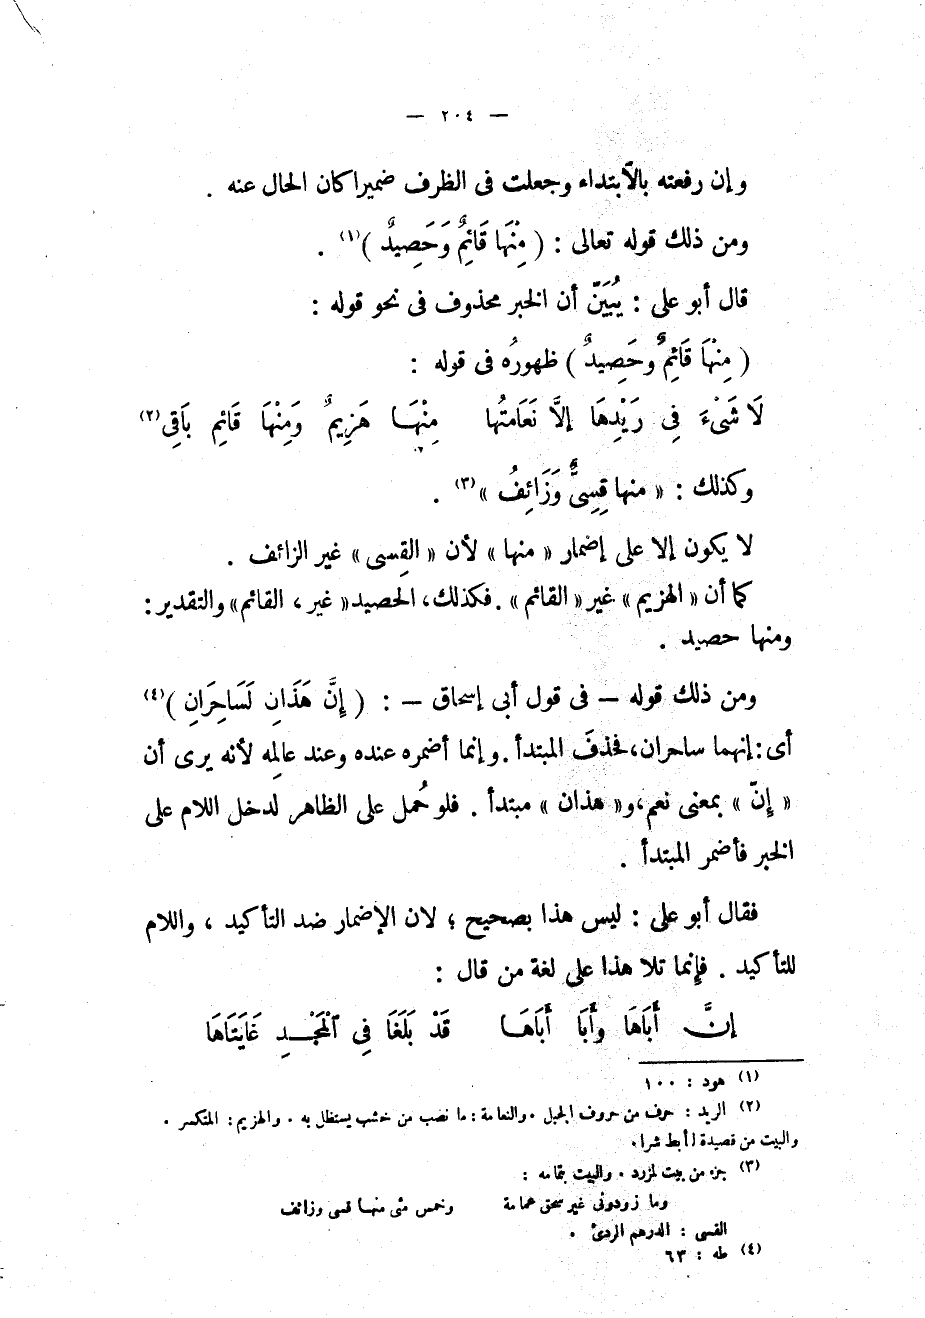 — ٢٠٤ —
وإن رفعته بالابتداء وجعلت فى الظرف ضميرا كان الحال عنه .
ومن ذلك قوله تعالى : ( مِنْهَا قَائِمٌ وَحَصِيدٌ )(١) .
قال أبو على : يُبَيِّن أن الخبر محذوف فى نحو قوله :
( مِنْهَا قَائِمٌ وحَصِيدٌ ) ظهورُه فى قوله :
لَا شَىْءَ فِى رَيْدِهَا إلَّا نَعَامَتُها مِنْهَـا هَزِيمٌ وَمِنْهَا قَائِم بَاقِى(٢)
وكذلك : « منها قِسِىٌّ وَزَائِفُ »(٣) .
لا يكون إلا على إضمار « منها » لأن « القِسى » غير الزائف .
كما أن « الهزيم » غير « القائم » . فكذلك، الحصيد « غير ، القائم» والتقدير :
ومنها حصيد .
ومن ذلك قوله — فى قول أبى إسحاق — : ( إِنَّ هَذَانِ لَسَاحِرَانِ )(٤)
أى : إنهما ساحران، فحذفَ المبتدأ . وإنما أضمره عنده وعند عالمِه لأنه يرى أن
« إنّ » بمعنى نعم، و« هذان » مبتدأ . فلو حُمل على الظاهر لدخل اللام على
الخبر فأضمر المبتدأ .
فقال أبو على : ليس هذا بصحيح ؛ لان الإضمار ضد التأكيد ، واللام
للتأكيد . فإنما تلا هذا على لغة من قال :
إنَّـ أَبَاهَا وأَبَا أَبَاهَـا قَدْ بَلَغَا فِى ٱلْمَجْـدِ غَايَتَاهَا
(١) هود : ١٠٠
(٢) الريد : حرف من حروف الجبل . والنعامة : ما نصب من خشب يستظل به . والهزيم : المتكسر .
والبيت من قصيدة لـأبط شرا .
(٣) جزء من بيت لمزرد . والبيت بتمامه :
وما زودونى غير سحق عمامة وخمس مئى منهـا قسى وزائف
القسى : الدرهم الردئ .
(٤) طه : ٦٣